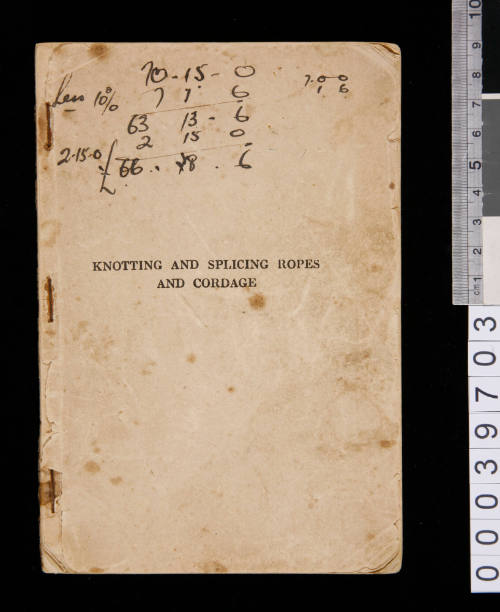 70-15-0
Less 10% 7 1 6
63 13-6
2-15-0 2 15 0
£66. 8. 6
7-0-0
1 6
KNOTTING AND SPLICING ROPES
AND CORDAGE
cm 1 2 3 4 5 6 7 8 9 10
00039703